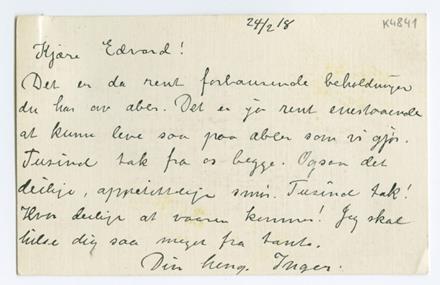 24/2 18
K4841
Kjære Edvard!
Det er da rent forbausende beholdninger
du har av æbler. Det er jo rent enestaaende
at kunne leve saa paa æbler som vi gjør.
Tusind tak fra os begge. Ogsaa det
deilige, appetitlige smør. Tusind tak!
Hvor deilig at vaaren kommer! Jeg skal
hilse dig saa meget fra tante.
Din heng. Inger.